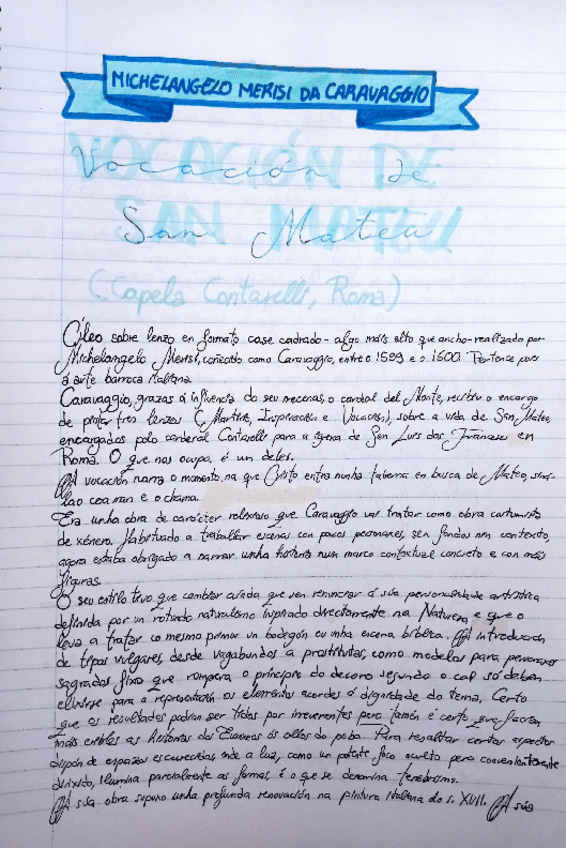 MICHELANGELO MERISI DA CARAVAGGIO
Vocación de
San Mateu
(Capela Contarelli, Roma)
Óleo sobre lenzo en formato case cadrado - algo máis alto que ancho - realizada por
Michelangelo Merisi, coñecido como Caravaggio, entre o 1599 e o 1600. Pertence pois
á arte barroca italiana.
Caravaggio, grazas á influencia do seu mecenas, o cardeal del Monte, recibiu o encargo
de pintar tres lenzos (Martirio, Inspiración e Vocación), sobre a vida de San Mateo,
encargados polo cardeal Contarelli para a igrexa de San Luis dos Franceses en
Roma. O que nos ocupa, é un deles.
A vocación narra o momento, na que Cristo entra nunha taberna en busca de Mateo, sina-
lao coa man e o chama.
Era unha obra de carácter relixioso que Caravaggio vai tratar como obra costumista
de xénero. Habituado a traballar escenas con poucos personaxes, sen fondos nin contexto,
agora estaba obrigado a narrar unha historia nun marco contextual concreto e con máis
figuras.
O seu estilo tivo que cambiar aínda que sen renunciar á súa personalidade artística
definida por un rotundo naturalismo inspirado directamente na Natureza, e que o
leva a tratar co mesmo primor un bodegón ou unha escena bíblica. A introdución
de tipos vulgares, desde vagabundos a prostitutas, como modelos para personaxes
sagrados fixo que rompera o principio do decoro segundo o cal só deben
elixirse para a representación os elementos acordes á dignidade do tema. Certo
que os resultados podían ser tidos por irreverentes pero tamén é certo que facían
máis cribles as historias dos Evanxeos ós ollos do pobo. Para resaltar certos aspectos
dispón de espazos escurecidos onde a luz, como un potente foco oculto pero convenientemente
dirixido, ilumina parcialmente as formas, é o que se denomina tenebrismo.
A súa obra supuxo unha profunda renovación na pintura italiana do s. XVII. A súa